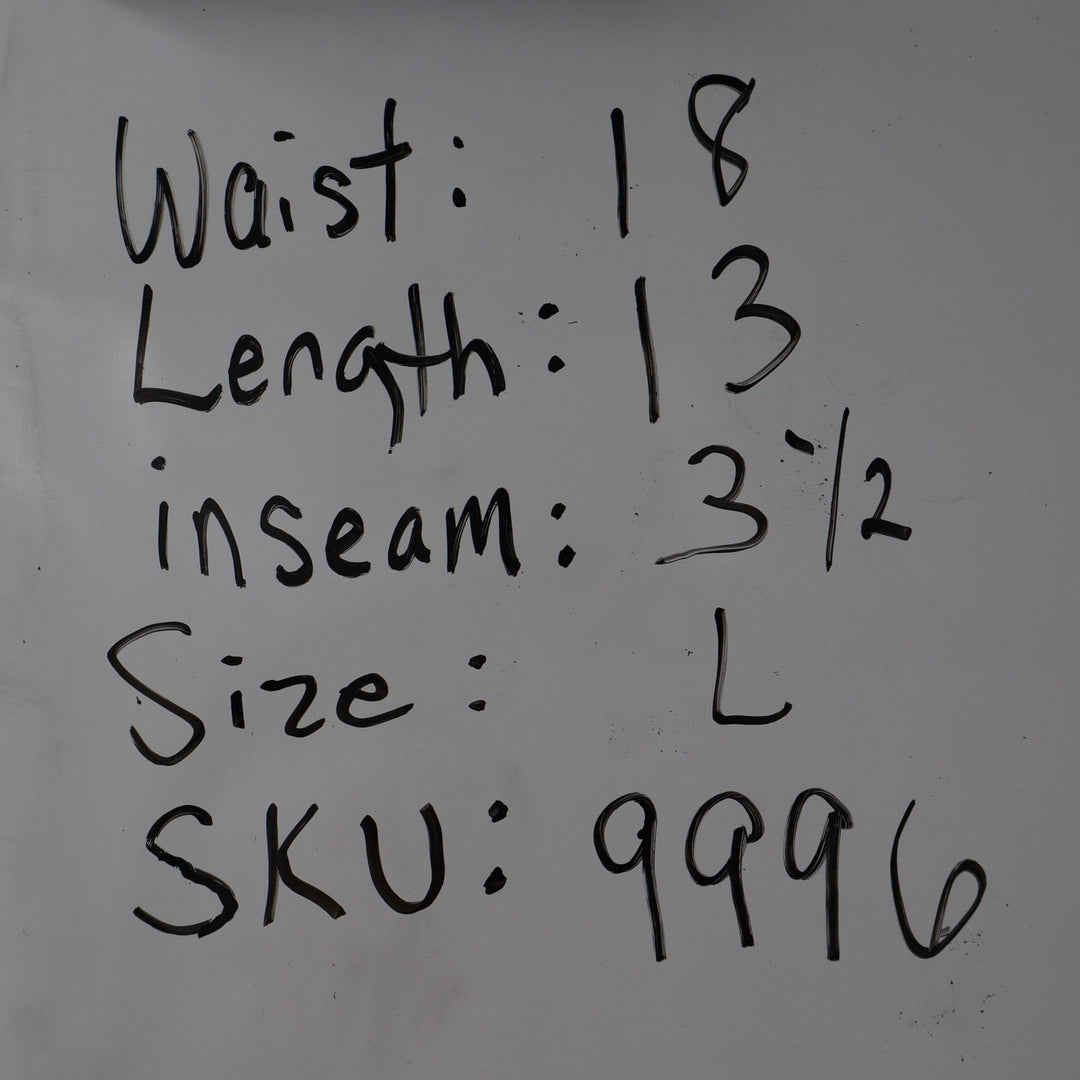 Waist: 18
Length: 13
inseam: 3 1/2
Size: L
SKU: 9996